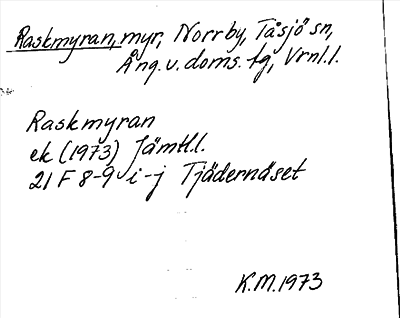 Raskmyran, myr, Norrby, Tåsjö sn,
Ång. v. doms. tg, Vrnl.l.
Raskmyran
ek (1973) Jämtl.l.
21 F 8-9 i-j Tjädernäset
K.M. 1973